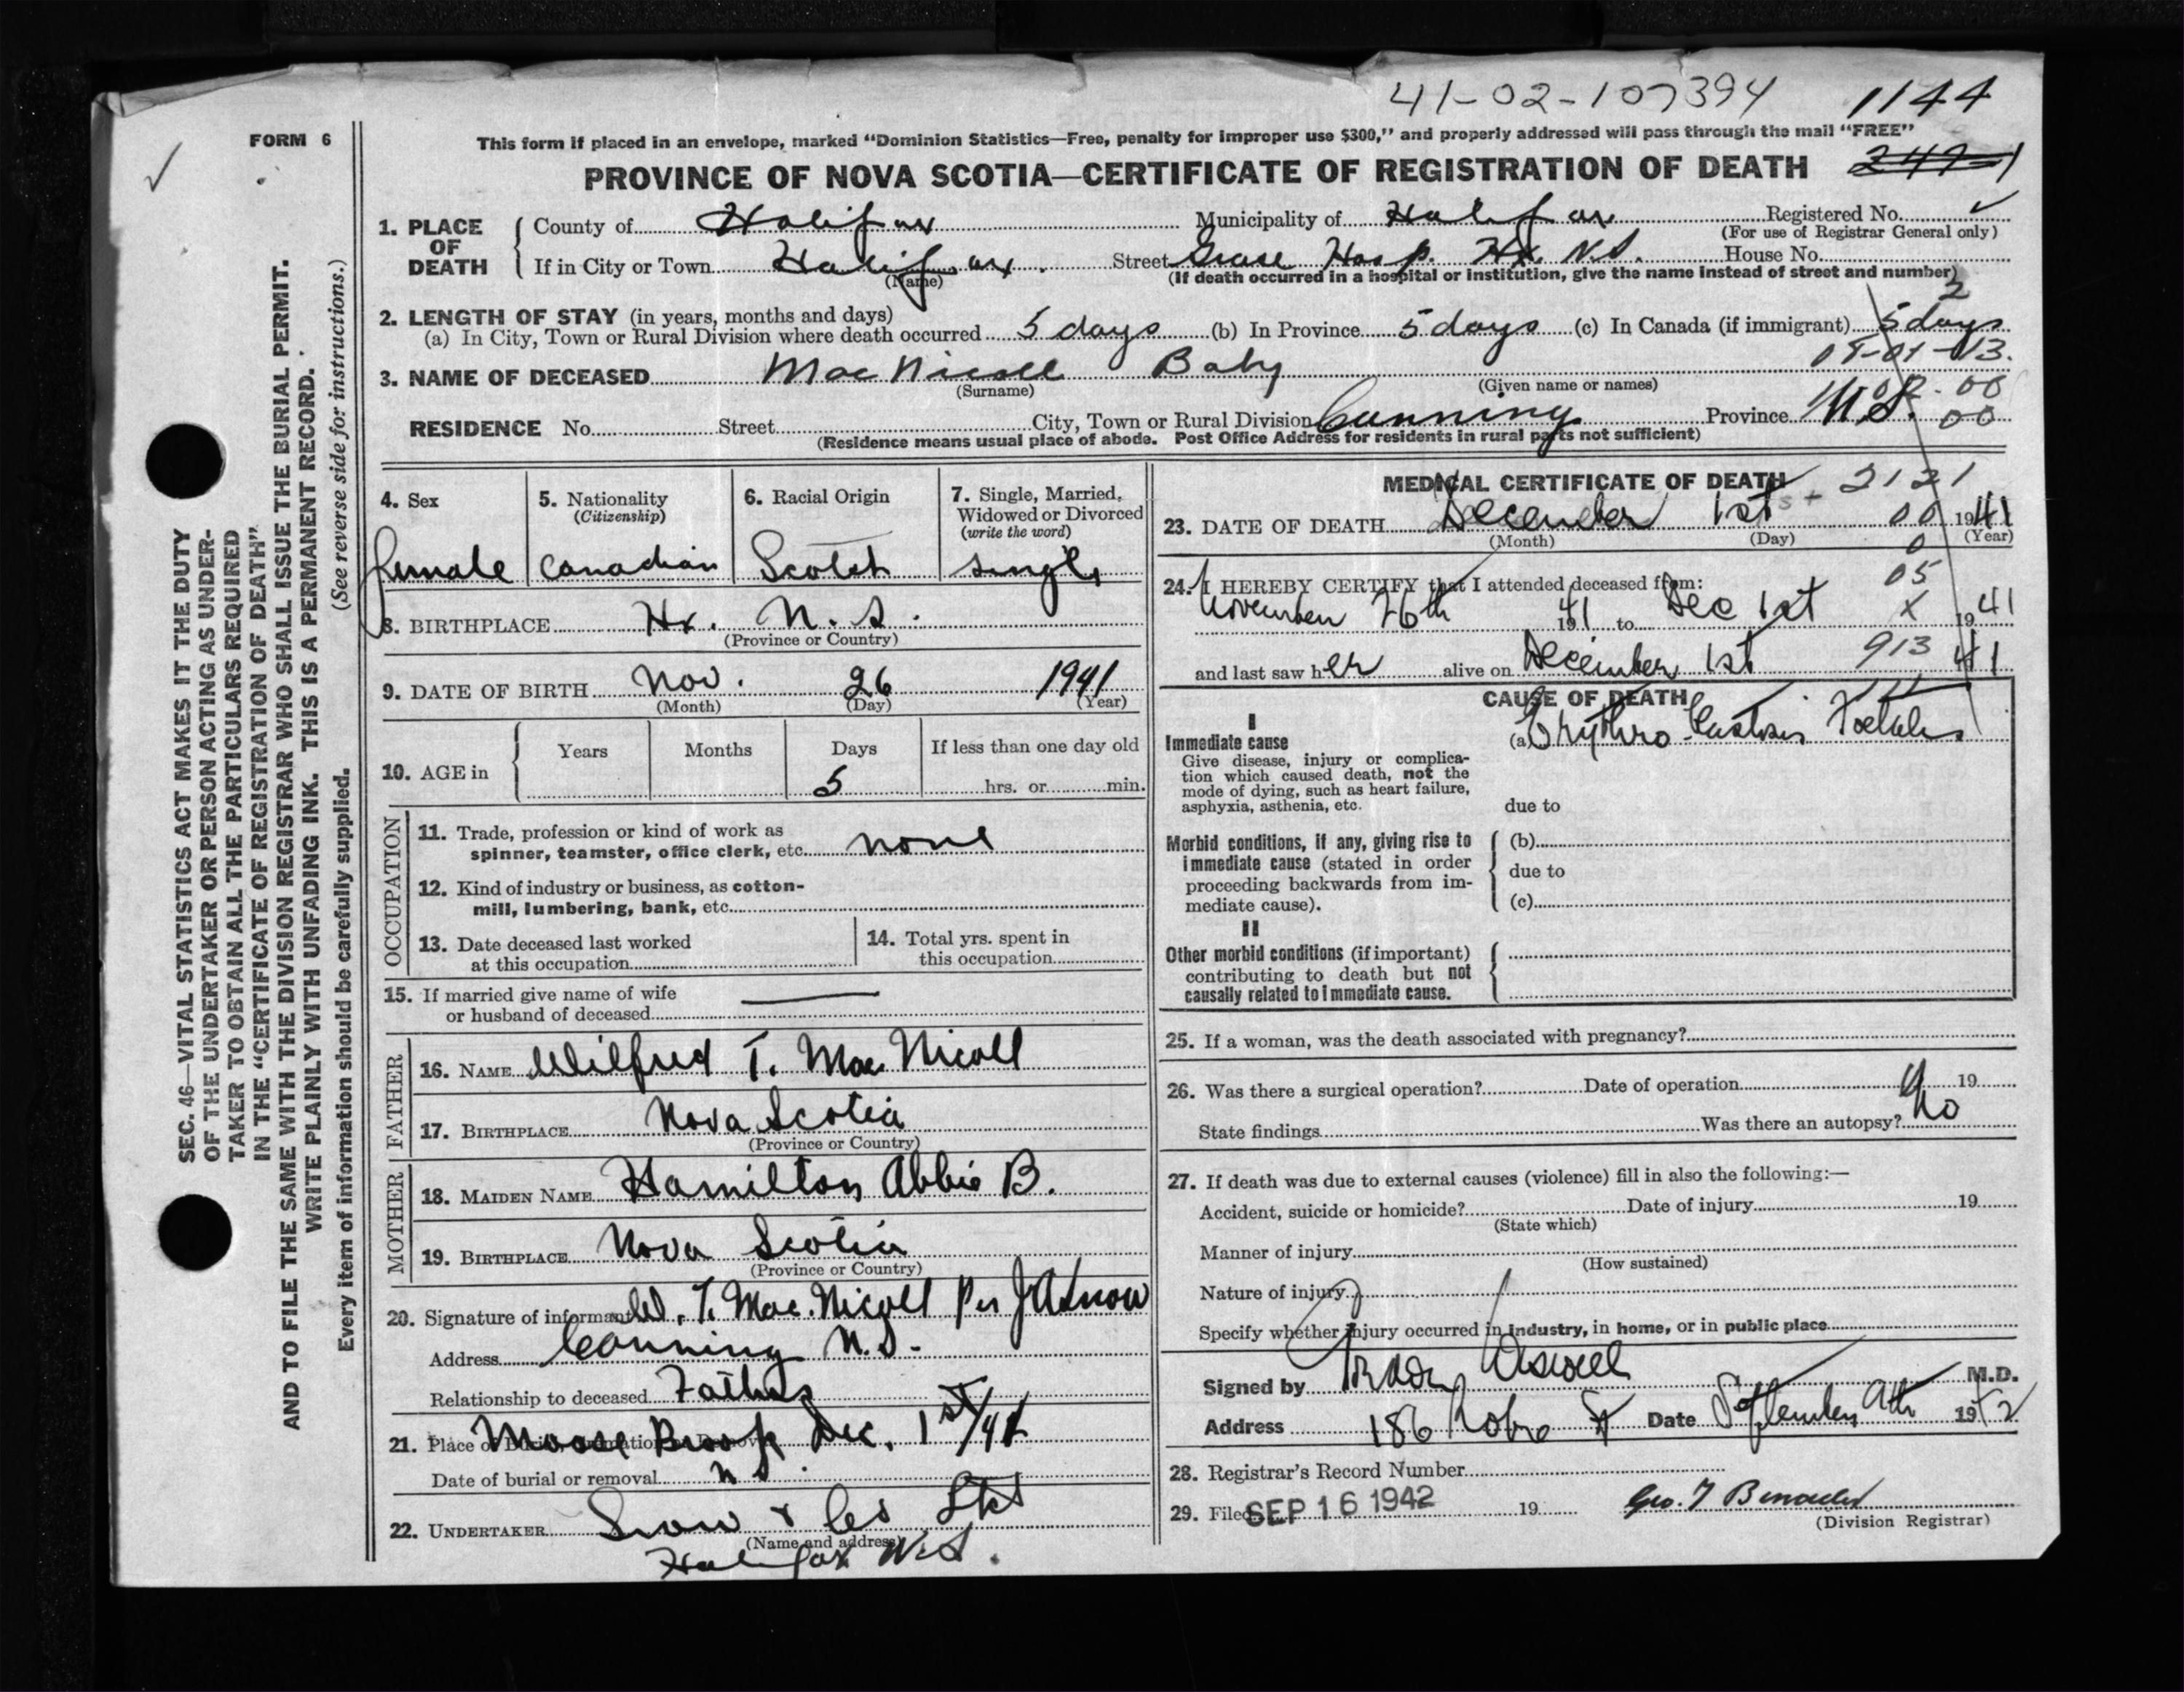 41-02-107394 1144
FORM 6
This form if placed in an envelope, marked “Dominion Statistics—Free, penalty for improper use $300,” and properly addressed will pass through the mail “FREE”
PROVINCE OF NOVA SCOTIA—CERTIFICATE OF REGISTRATION OF DEATH
1. PLACE OF DEATH
County of Halifax Municipality of Halifax Registered No. ✓
(For use of Registrar General only)
If in City or Town Halifax. Street Grace Hosp. Hx. N.S. House No.
(Name) (If death occurred in a hospital or institution, give the name instead of street and number)
2
2. LENGTH OF STAY (in years, months and days)
(a) In City, Town or Rural Division where death occurred 5 days (b) In Province 5 days (c) In Canada (if immigrant) 5 days
3. NAME OF DECEASED MacNicoll Baby
(Surname) (Given name or names)
RESIDENCE No. Street City, Town or Rural Division Canning Province N.S.
(Residence means usual place of abode. Post Office Address for residents in rural parts not sufficient)
4. Sex female
5. Nationality (Citizenship) Canadian
6. Racial Origin Scotch
7. Single, Married, Widowed or Divorced (write the word) single
8. BIRTHPLACE Hx. N.S.
(Province or Country)
9. DATE OF BIRTH Nov. 26 1941
(Month) (Day) (Year)
10. AGE in Years Months Days If less than one day old
5 hrs. or min.
OCCUPATION
11. Trade, profession or kind of work as
spinner, teamster, office clerk, etc. none
12. Kind of industry or business, as cotton-
mill, lumbering, bank, etc.
13. Date deceased last worked
at this occupation
14. Total yrs. spent in
this occupation
15. If married give name of wife
or husband of deceased
FATHER
16. NAME Wilfred T. MacNicoll
17. BIRTHPLACE Nova Scotia
(Province or Country)
MOTHER
18. MAIDEN NAME Hamilton Abbie B.
19. BIRTHPLACE Nova Scotia
(Province or Country)
20. Signature of informant W. T. MacNicoll Per J A Snow
Address Canning N.S.
Relationship to deceased Father
21. Place of Burial, Cremation or Removal Moose Brook Dec. 1st/41
Date of burial or removal N S.
22. UNDERTAKER Snow & Co Ltd
(Name and address)
Halifax N.S.
MEDICAL CERTIFICATE OF DEATH 2121
23. DATE OF DEATH December 1st 00 1941
(Month) (Day) (Year)
0
24. I HEREBY CERTIFY that I attended deceased from: 05
November 26th 1941 to Dec 1st X 1941
and last saw her alive on December 1st 913 41
CAUSE OF DEATH
I
Immediate cause
Give disease, injury or complica-
tion which caused death, not the
mode of dying, such as heart failure,
asphyxia, asthenia, etc.
(a) Erythro blastosis Foetalis
due to
Morbid conditions, if any, giving rise to
immediate cause (stated in order
proceeding backwards from im-
mediate cause).
(b)
due to
(c)
II
Other morbid conditions (if important)
contributing to death but not
causally related to immediate cause.
25. If a woman, was the death associated with pregnancy?
26. Was there a surgical operation? Date of operation 19
State findings Was there an autopsy? No
27. If death was due to external causes (violence) fill in also the following:—
Accident, suicide or homicide? Date of injury 19
(State which)
Manner of injury
(How sustained)
Nature of injury
Specify whether injury occurred in industry, in home, or in public place
Signed by M.D.
Address 186 Robie St Date September 9th 1942
28. Registrar's Record Number
29. Filed SEP 16 1942 19
(Division Registrar)
SEC. 46—VITAL STATISTICS ACT MAKES IT THE DUTY
OF THE UNDERTAKER OR PERSON ACTING AS UNDER-
TAKER TO OBTAIN ALL THE PARTICULARS REQUIRED
IN THE “CERTIFICATE OF REGISTRATION OF DEATH”
AND TO FILE THE SAME WITH THE DIVISION REGISTRAR WHO SHALL ISSUE THE BURIAL PERMIT.
WRITE PLAINLY WITH UNFADING INK. THIS IS A PERMANENT RECORD.
Every item of information should be carefully supplied. (See reverse side for instructions.)